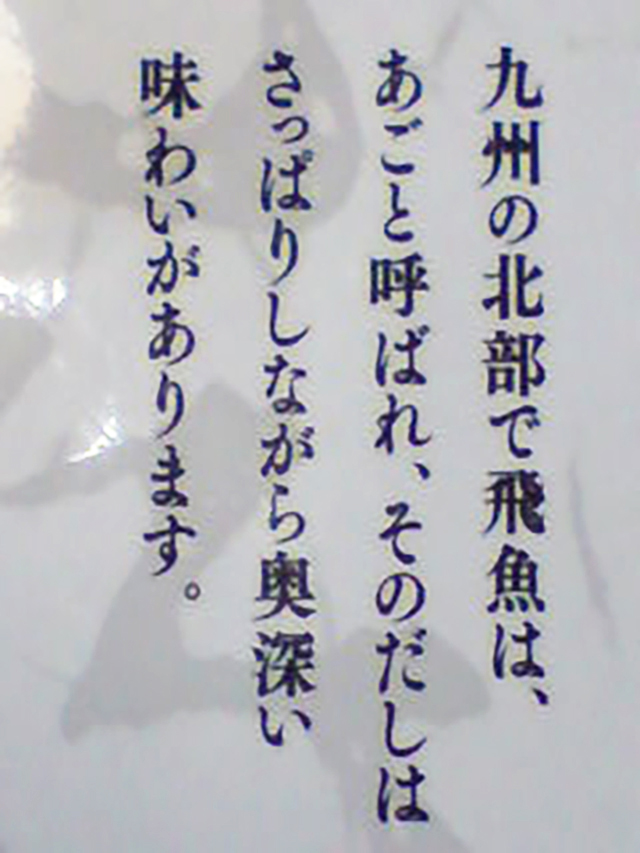 九州の北部で飛魚は、
あごと呼ばれ、そのだしは
さっぱりしながら奥深い
味わいがあります。